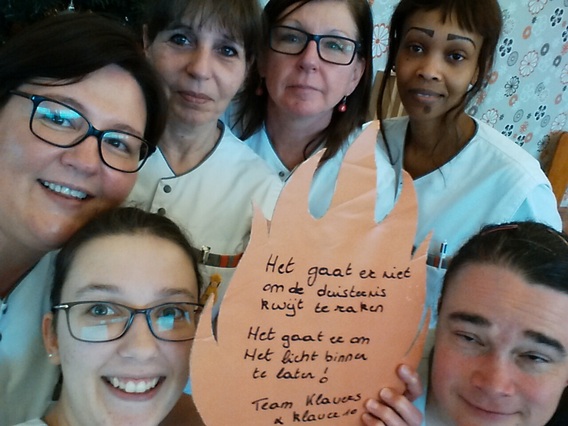 Het gaat er niet
om de duisternis
kwijt te raken
Het gaat er om
Het licht binnen
te laten!
Team Klavers
& Klaver 10